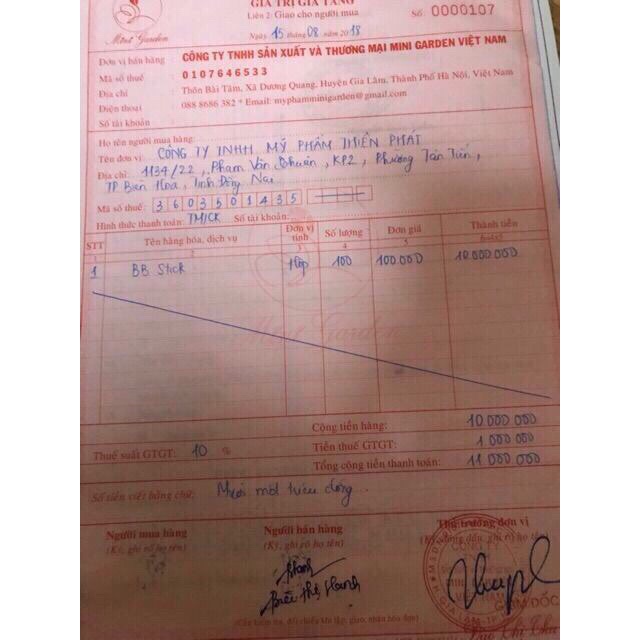 GIÁ TRỊ GIA TĂNG
Liên 2: Giao cho người mua
Số: 0000107
Ngày 15 tháng 08 năm 2018
Mint Garden
Đơn vị bán hàng CÔNG TY TNHH SẢN XUẤT VÀ THƯƠNG MẠI MINI GARDEN VIỆT NAM
Mã số thuế 0107646533
Địa chỉ : Thôn Bài Tâm, Xã Dương Quang, Huyện Gia Lâm, Thành Phố Hà Nội, Việt Nam
Điện thoại : 088 8686 382 * Email: myphamminigarden@gmail.com
Số tài khoản :
Họ tên người mua hàng:
Tên đơn vị: CÔNG TY TNHH MỸ PHẨM THIÊN PHÁT
Địa chỉ: 1134/22, Phạm Văn Thuận, KP2, Phường Tân Tiến,
TP Biên Hòa, Tỉnh Đồng Nai
Mã số thuế: 3603501435
Hình thức thanh toán: TM/CK Số tài khoản:
STT Tên hàng hóa, dịch vụ Đơn vị tính Số lượng Đơn giá Thành tiền
1 2 3 4 5 6=4x5
1 BB Stick Hộp 100 100.000 10.000.000
Mint Garden
Cộng tiền hàng: 10 000 000
Thuế suất GTGT: 10 % Tiền thuế GTGT: 1 000 000
Tổng cộng tiền thanh toán: 11 000 000
Số tiền viết bằng chữ: Mười một triệu đồng.
Người mua hàng Người bán hàng Thủ trưởng đơn vị
(Ký, ghi rõ họ tên) (Ký, ghi rõ họ tên)
CÔNG TY
GIÁM ĐỐC
(Cần kiểm tra, đối chiếu khi lập, giao, nhận hóa đơn)